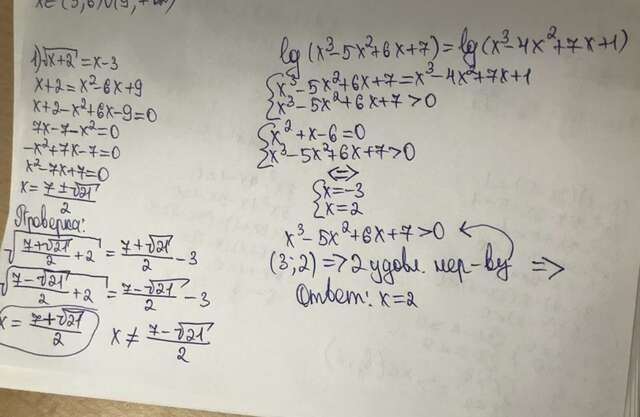 1) √x+2 = x-3
x+2 = x²-6x+9
x+2-x²+6x-9=0
7x-7-x²=0
-x²+7x-7=0
x²-7x+7=0
x = 7±√21 / 2
Проверка:
√(7+√21 / 2 + 2) = 7+√21 / 2 - 3
√(7-√21 / 2 + 2) = 7-√21 / 2 - 3
x = 7+√21 / 2 x ≠ 7-√21 / 2
lg(x³-5x²+6x+7) = lg(x³-4x²+7x+1)
{x³-5x²+6x+7 = x³-4x²+7x+1
x³-5x²+6x+7 > 0
{x²+x-6=0
x³-5x²+6x+7>0
<=>
{x=-3
x=2
x³-5x²+6x+7>0
(3;2) => 2 удовл. нер-ву =>
Ответ: x=2